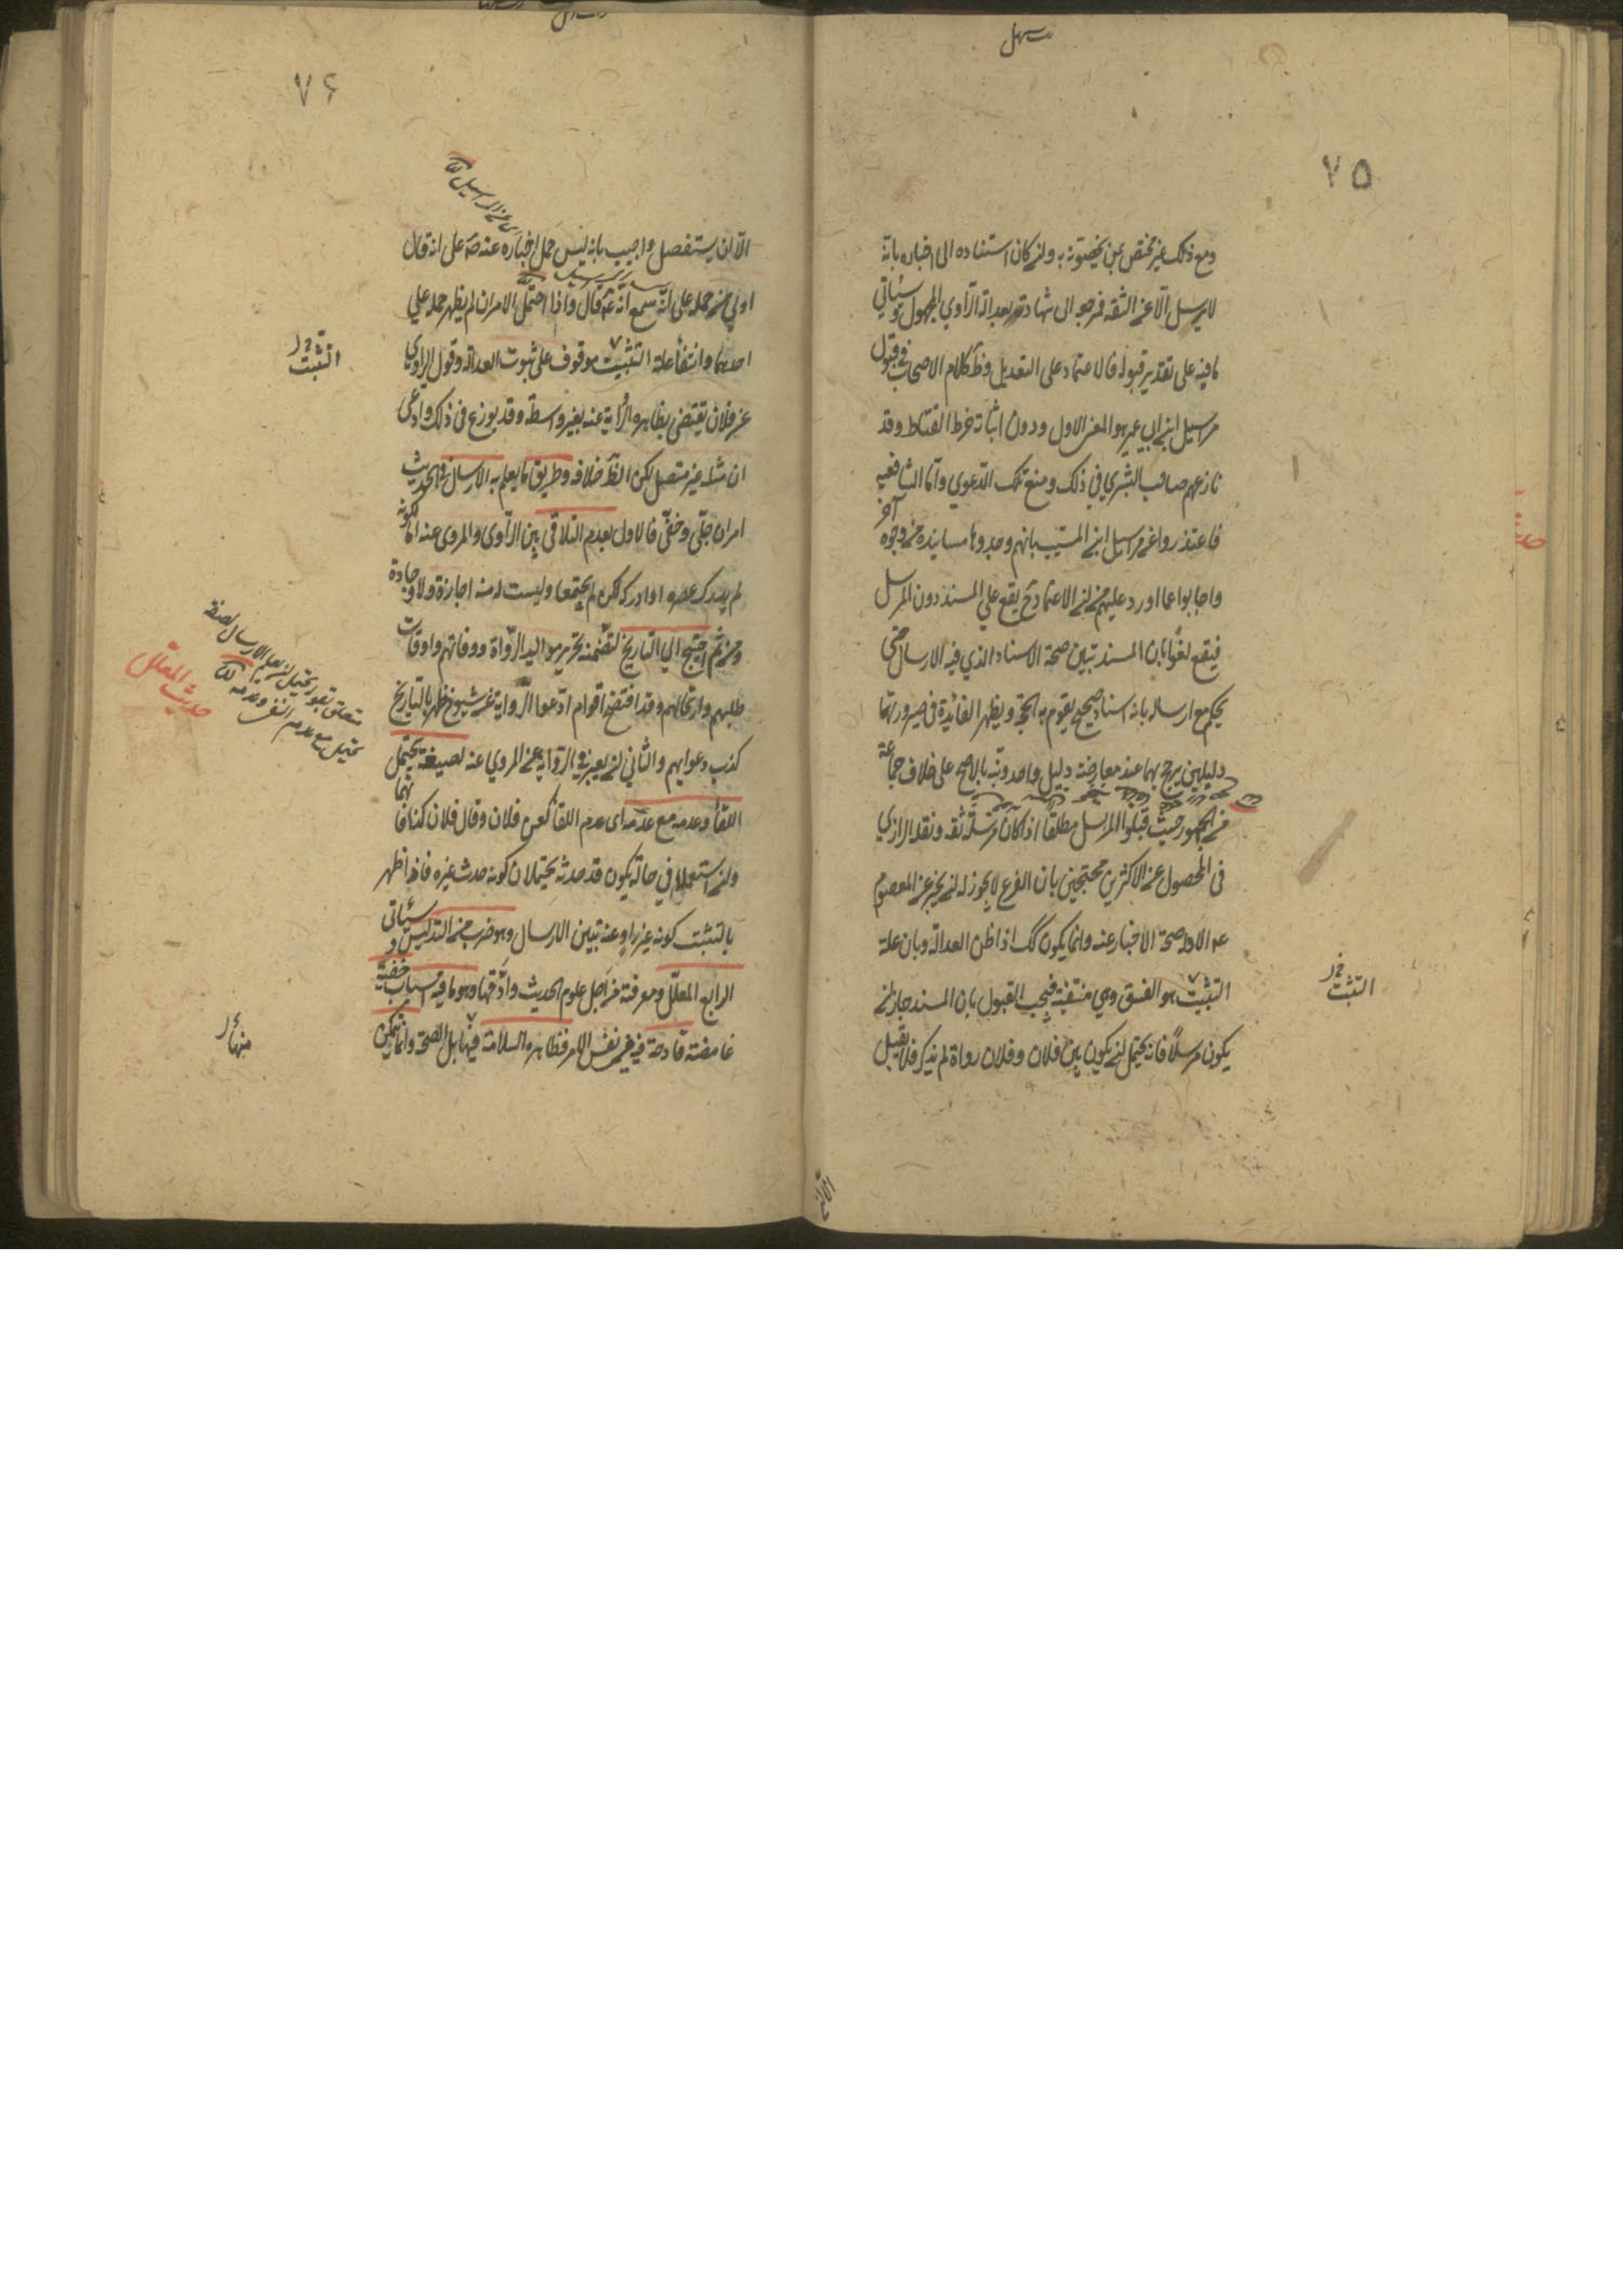 ٧٥
ومع ذلك غير مختص بمن يخصونه به وان كان استناده الى اخباره بانه
لا يرسل الا عن الثقة فمرجعه الى شهادته بعدالة الراوي المجهول وسيأتي
ما فيه على تقدير قبوله فالاعتماد على التعديل وظ كلام الاصحاب في قبول
مراسيل ابن ابي عمير هو المعنى الاول ودون اثباته خرط القتاد وقد
نازعهم صاحب البشرى في ذلك ومنع تلك الدعوى واما الشافعية
فاعتذروا عن مراسيل ابن المسيب بانهم وجدوها مسانيد من وجوه آخر
واجابوا عما اورد عليهم من ان الاعتماد ح يقع على المسند دون المرسل
فيقع لغوا بان المسند تبين صحة الاسناد الذي فيه الارسال حتى
يحكم مع ارساله بانه اسناد صحيح يقوم به الحجة ويظهر الفائدة في صيرورتهما
دليلين يرجح بهما عند معارضة دليل واحد ونبه بالاصح على خلاف جماعة
من الجمهور حيث قبلوا المرسل مطلقا اذا كان مرسله ثقة ونقله الرازي
في المحصول عن الاكثرين محتجين بان الفرع لا يجوز له ان يخبر عن المعصوم
عم الا وله صحة الاخبار عنه وانما يكون كك اذا ظن العدالة وبان علة
التثبيت هو الفسق وهي منتفية فيجب القبول بان المسند جاز ان
يكون مرسلا فانه يحتمل ان يكون بين فلان وفلان رواة لم يذكر فلا يقبل
التثبت خ ر
٧۶
الا ان يستفصل واجيب بانه ليس حمل اخباره عنه ص على انه قال
اولى من حمله على انه سمع انه ع قال واذا احتمل الامران لم يظهر حمله على
احدهما وانتفاء علة التثبيت موقوف على ثبوت العدالة وقول الراوي
عن فلان يقتضي بظاهره الرواية عنه بغير واسطة وقد يوزع في ذلك وادعى
ان مثله غير متصل لكن الظ خلافه وطريق ما يعلم به الارسال في الحديث
امران جلي وخفي فالاول بعدم التلاقي بين الراوى والمروى عنه اما لكونه
لم يدرك عصره او ادركه لكن لم يجتمعا وليست له منه اجازة ولا وجادة
ومن ثم احتيج الى التاريخ لتضمنه تحرير مواليد الرواة ووفاتهم واوقات
طلبهم وارتحالهم وقد افتضح اقوام ادعوا الرواية عن شيوخ ظهر بالتاريخ
كذب دعواهم والثاني ان يعبر في الرواية عن المروي عنه بصيغة تحتمل
اللقاء وعدمه مع عدمه اى عدم اللقاء كعن فلان وقال فلان كذا فانهما
وان استعملا في حالة يكون قد حدثه يحتملان كونه حدث غيره فاذا ظهر
بالتثبت كونه غير راو عنه تبين الارسال وهو ضرب من التدليس وسيأتى
الرابع المعلل ومعرفته من اجل علوم الحديث وادقها وهو ما فيه اسباب خفية
غامضة قادحة فيه في نفس الامر فظاهره السلامة فيها بل الصحة وانما يتمكن
التثبت خ ر
حديث المعلل
منها ر